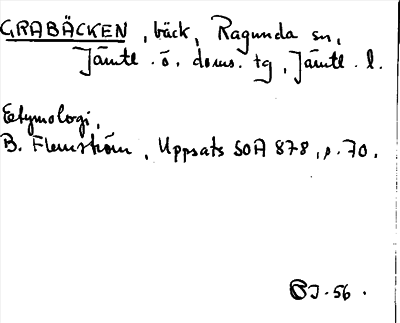 GRABÄCKEN, bäck, Ragunda sn,
Jämtl. ö. doms. tg, Jämtl. l.
Etymologi,
B. Flemström, Uppsats SOA 878, p. 70.
56.